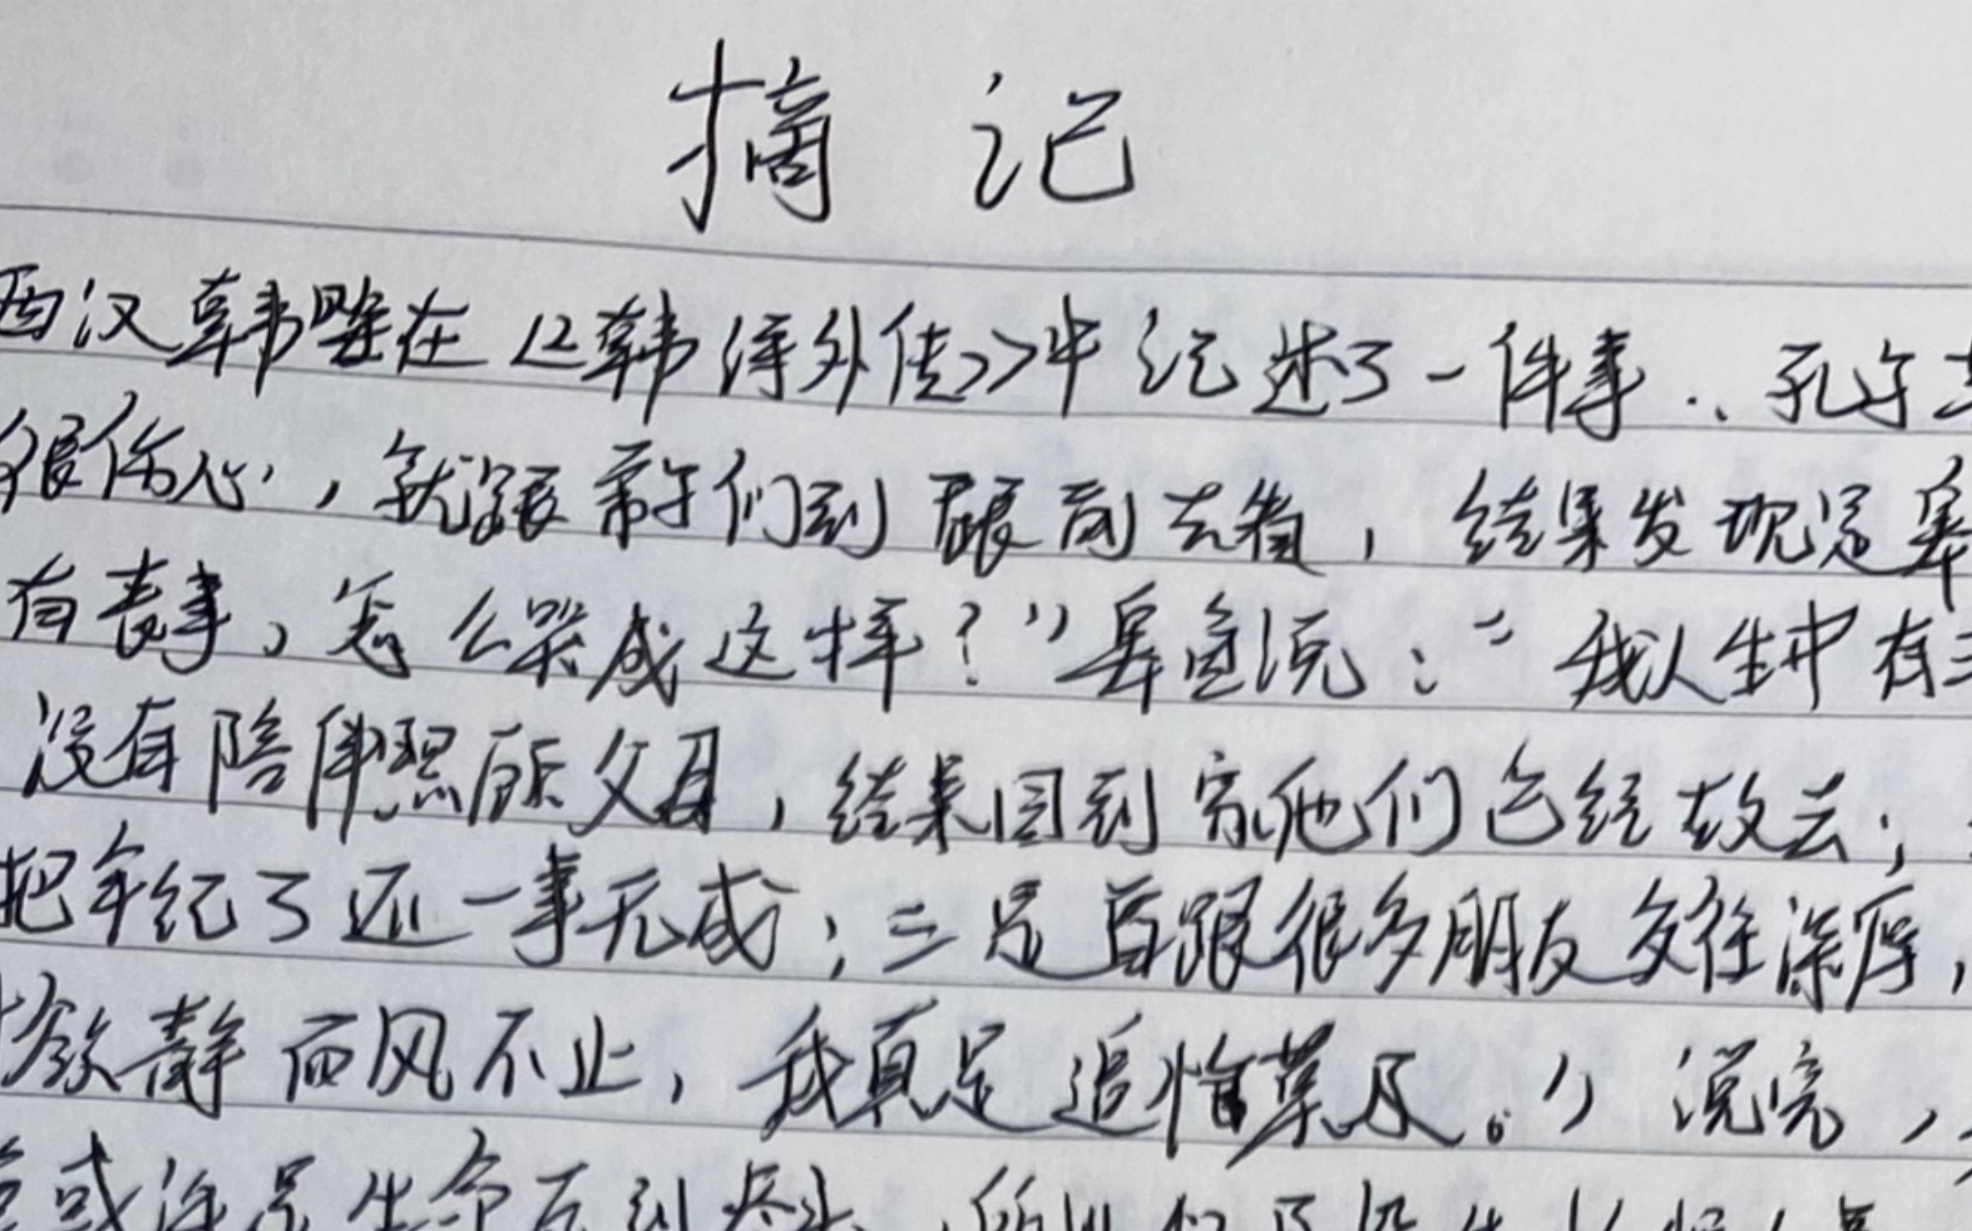 摘记
西汉韩婴在《韩诗外传》中记述了一件事:孔子
很伤心,就跟弟子们到跟前去看,结果发现是皋
有丧事,怎么哭成这样?”皋鱼说:“我人生中有三
没有陪伴照顾父母,结果回到家他们已经故去;
把年纪了还一事无成;三是曾跟很多朋友交往深厚,
欲静而风不止,我真是追悔莫及。”说完,
或许是生命